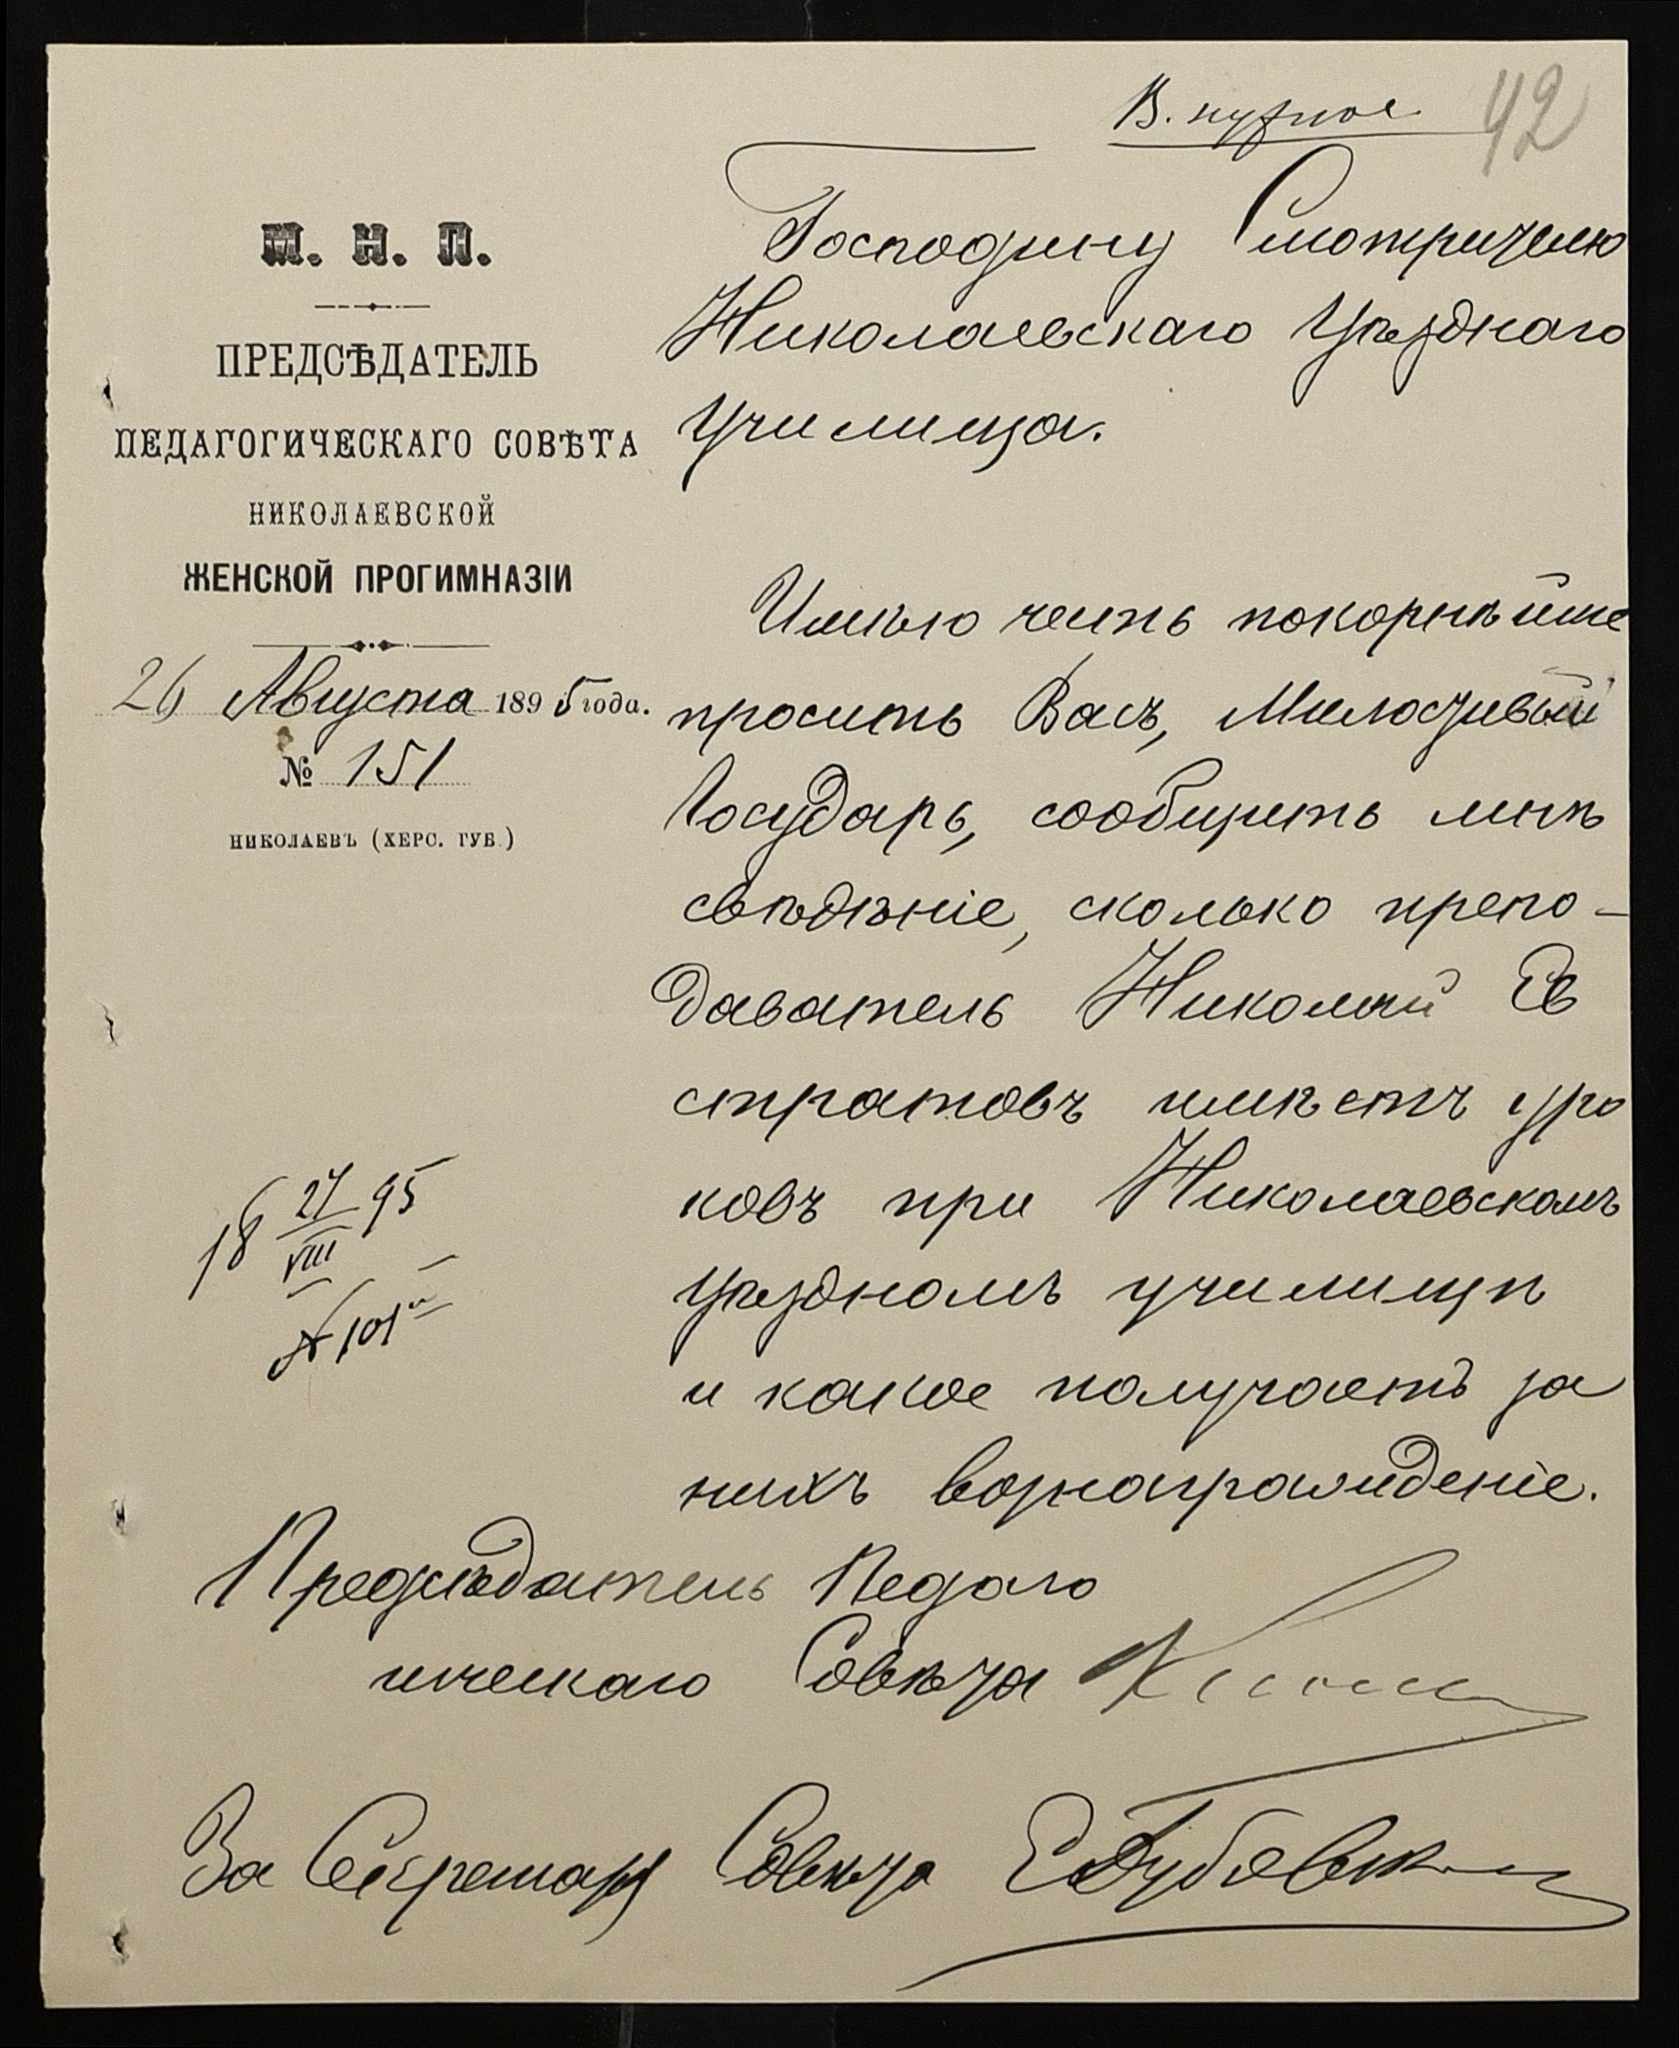 В. нужное
42
М. Н. П.
ПРЕДСѢДАТЕЛЬ
ПЕДАГОГИЧЕСКАГО СОВѢТА
НИКОЛАЕВСКОЙ
ЖЕНСКОЙ ПРОГИМНАЗІИ
26 Августа 1895 года.
№ 151
НИКОЛАЕВЪ (ХЕРС. ГУБ.)
18 27/VIII 95
№ 101
Господину Смотрителю
Николаевскаго Уѣзднаго
Училища.
Имѣю честь покорнѣйше
просить Васъ, Милостивый
Государь, сообщить мнѣ
свѣдѣніе, сколько препо-
даватель Николай Ев
стратовъ имѣетъ уро
ковъ при Николаевскомъ
Уѣздномъ училищѣ
и какое получаетъ за
нихъ вознагражденіе.
Предсѣдатель Педаго
гическаго Совѣта
За Секретаря Совѣта